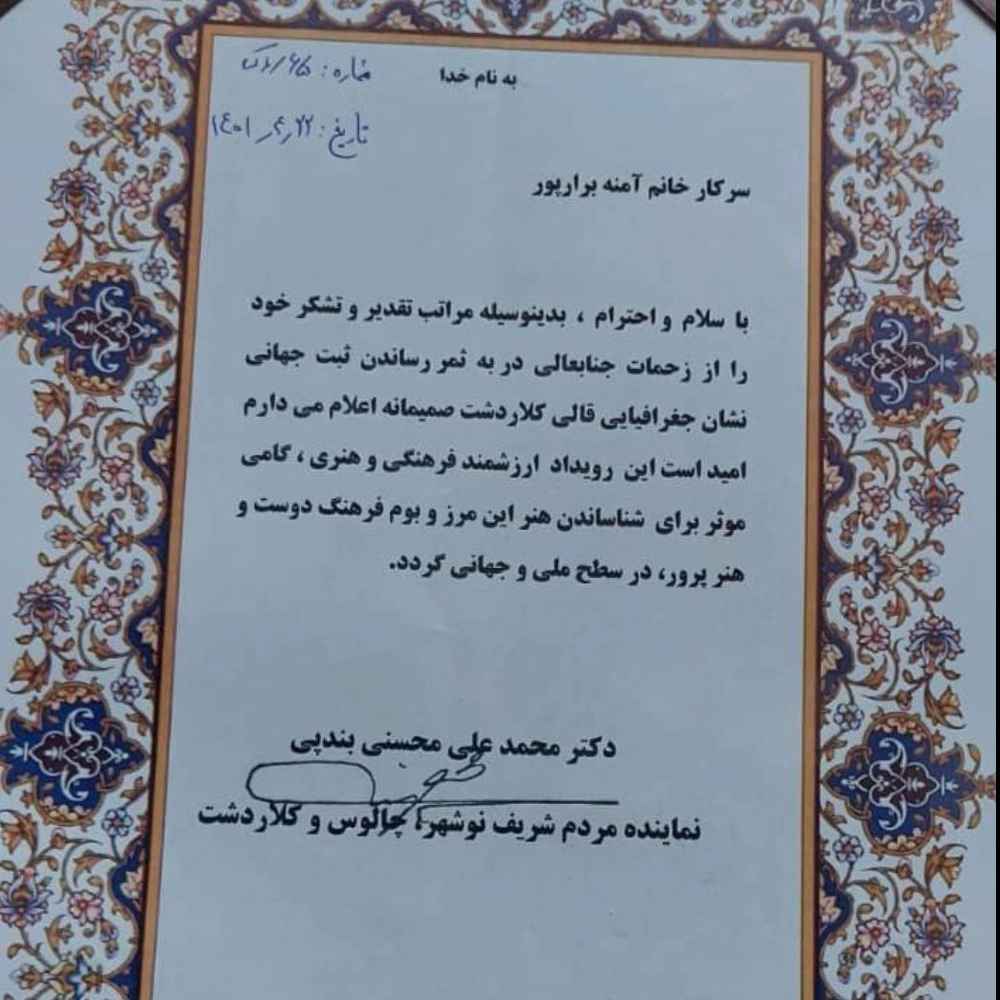 به نام خدا
شماره: ۶۶۵
تاریخ: ۱۴۰۱٫۴٫۲۲
سرکار خانم آمنه برارپور
با سلام و احترام ، بدینوسیله مراتب تقدیر و تشکر خود
را از زحمات جنابعالی در به ثمر رساندن ثبت جهانی
نشان جغرافیایی قالی کلاردشت صمیمانه اعلام می دارم
امید است این رویداد ارزشمند فرهنگی و هنری ، گامی
موثر برای شناساندن هنر این مرز و بوم فرهنگ دوست و
هنر پرور، در سطح ملی و جهانی گردد.
دکتر محمد علی محسنی بندپی
نماینده مردم شریف نوشهر، چالوس و کلاردشت